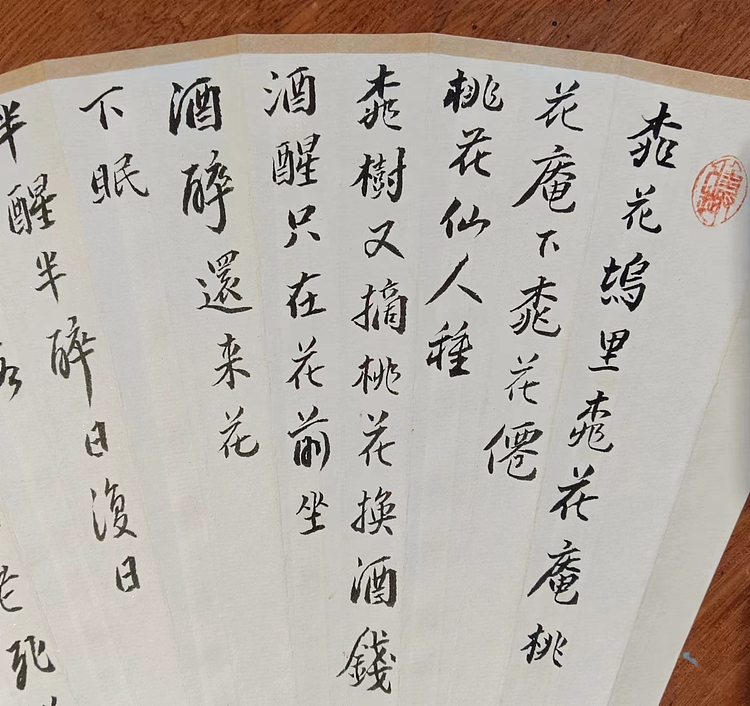 桃花塢里桃花庵桃
花庵下桃花僊
桃花仙人種
桃樹又摘桃花換酒錢
酒醒只在花前坐
酒醉還来花
下眠
半醒半醉日復日
老死